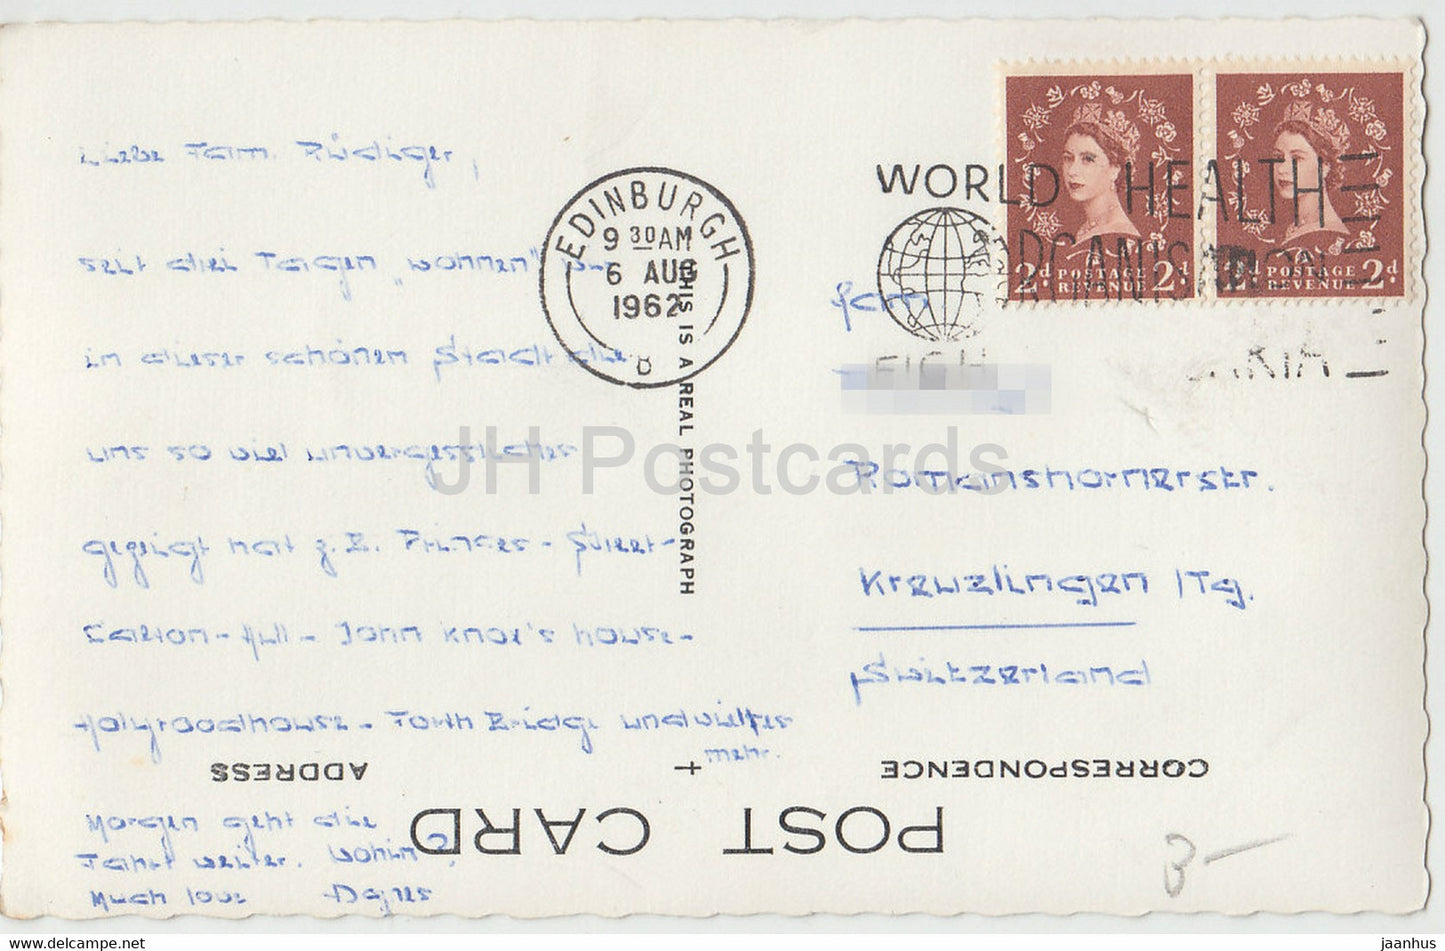 Liebe Fam. Rüdiger,
seit drei Tagen „wohnen" wir
in dieser schönen Stadt die
uns so viel unvergessliches
gezeigt hat z.B. Princes-Street-
Calton-Hill- John Knox's house-
Holyroodhouse- Forth Bridge und vieles
mehr.
Morgen geht die
Fahrt weiter. Wohin?
Much love Agnes
EDINBURGH
9 30 AM
6 AUG
1962
D
THIS IS A REAL PHOTOGRAPH
WORLD HEALTH
ORGANISATION
2d POSTAGE REVENUE 2d
2d POSTAGE REVENUE 2d
Fam
Romanshornerstr.
Kreuzlingen /Tg.
Switzerland
ADDRESS
CORRESPONDENCE
POST CARD
3-
JH Postcards
www.delcampe.net
jaanhus